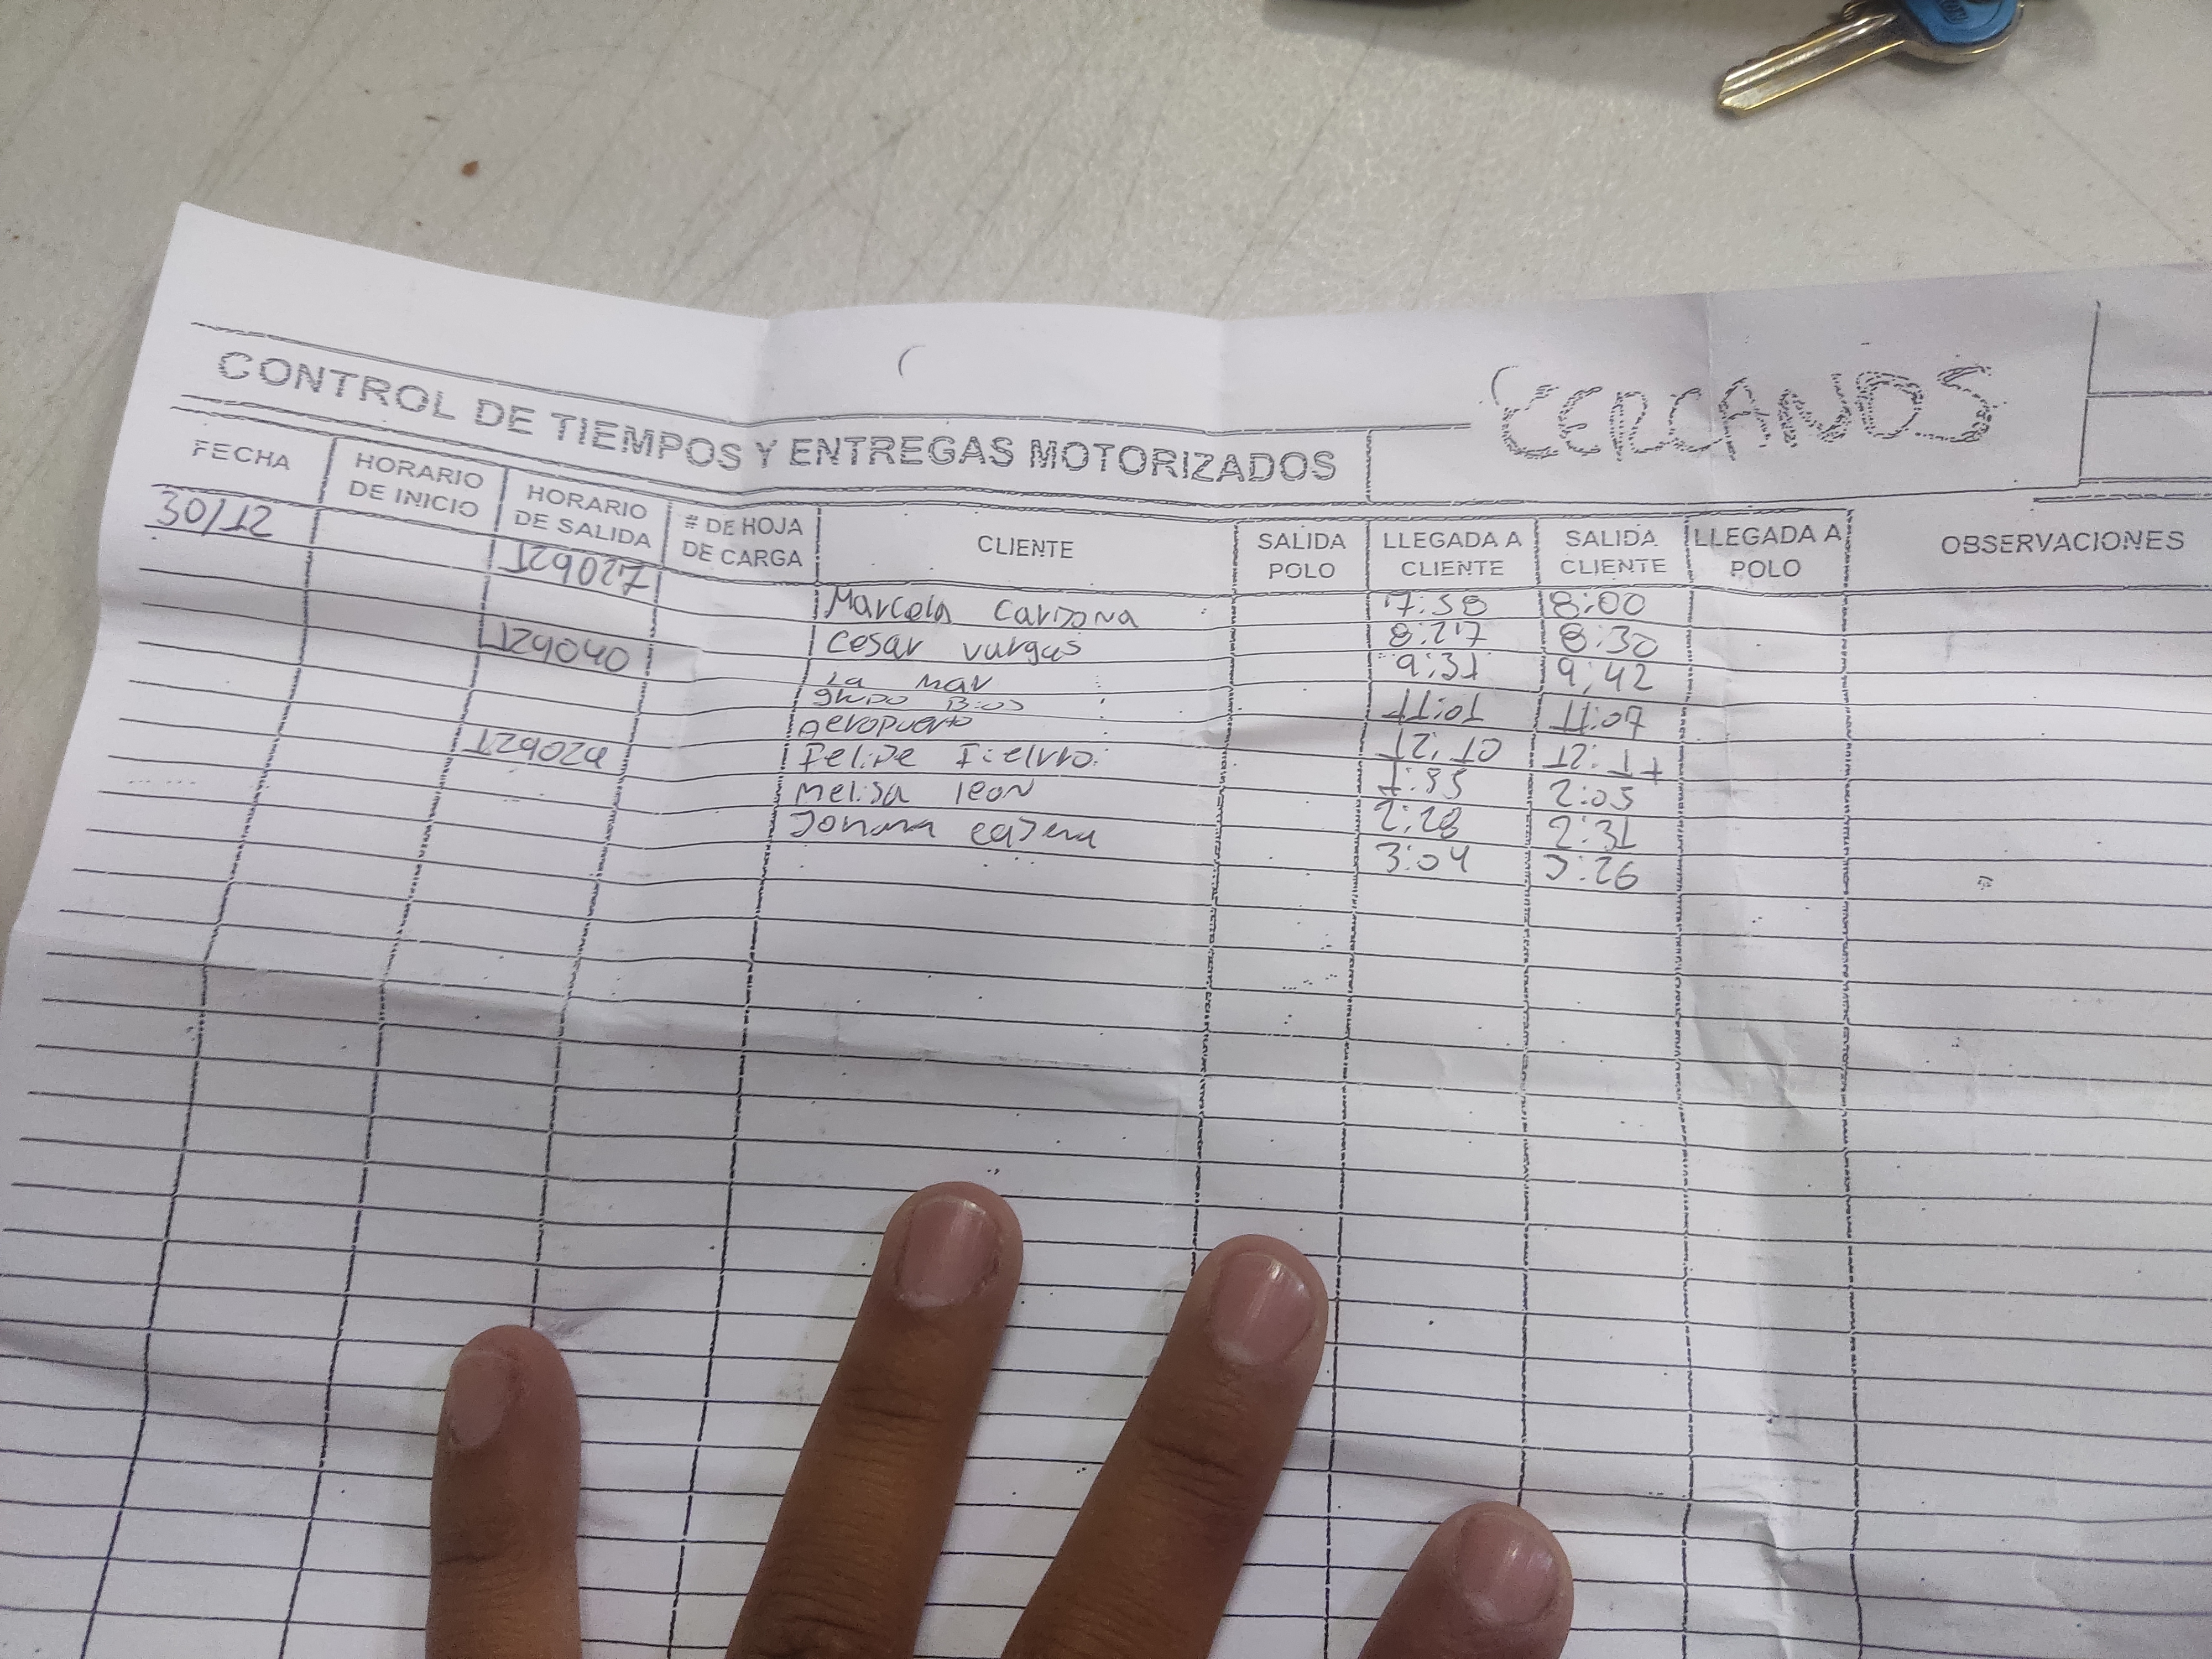 CERCANOS
CONTROL DE TIEMPOS Y ENTREGAS MOTORIZADOS
FECHA HORARIO DE INICIO HORARIO DE SALIDA # DE HOJA DE CARGA CLIENTE SALIDA POLO LLEGADA A CLIENTE SALIDA CLIENTE LLEGADA A POLO OBSERVACIONES
30/12 129027 Marcela Cardona 7:58 8:00
Cesar vargas 8:27 8:30
129040 La mar 9:31 9:42
grupo Bios 11:01 11:07
aeropuerto 12:10 12:17
129024 Felipe 1:55 2:05
melisa leon 2:28 2:31
3:04 3:26